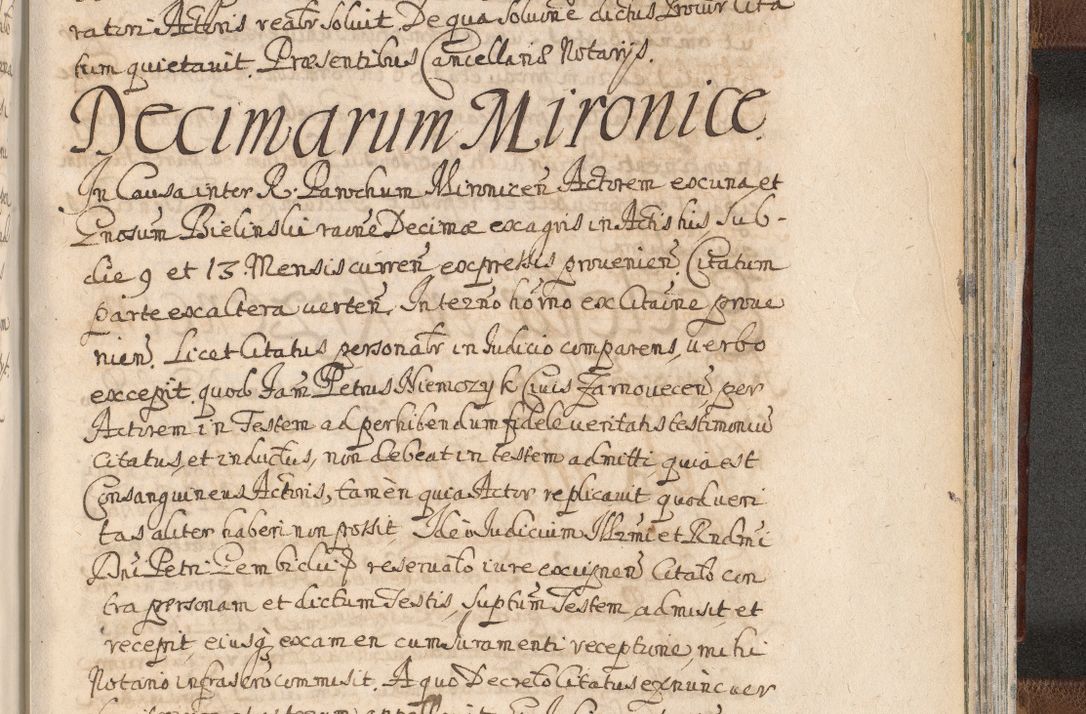 ratori Actoris realr soluit. De qua solutne dictus Procur Cita
tum quietauit. Præsentibus Cancellariæ Notarys.
Decimarum Mironice.
In Causa inter R. Parochum Mironiceñ Actorem ex una et
Gnosum Bielinski raone Decimæ ex agris in Actis his sub
die 9 et 13 Mensis curreñ expressis prouenieñ. Citatum
parte ex altera uerteñ. In termo hoīno ex Citaone proue
nieñ. Licet Citatus personalr in Iudicio comparens, uerbo
excepit, quod Fam Petrus Niemczyk Ciuis Zarnoueceñ per
Actorem in Testem ad perhibendum fidele ueritatis testimoniū
Citatus, et inductus, non debeat in testem admitti, quia est
Consanguineus Actoris, tamèn quia Actor replicauit quod ueri
tas aliter haberi non possit. Ideo Iudicium Illrmi et Rndmi
Dni Petri Gembicki P reseruato iure excipieñ Citato con
tra personam et dictum Testis, suptum Testem admisit et
recepit, eiusq̨ examen cum iuramenti receptione, mihi
Notario infrascro commisit. A quo Decreto Citatus ex nunc uer